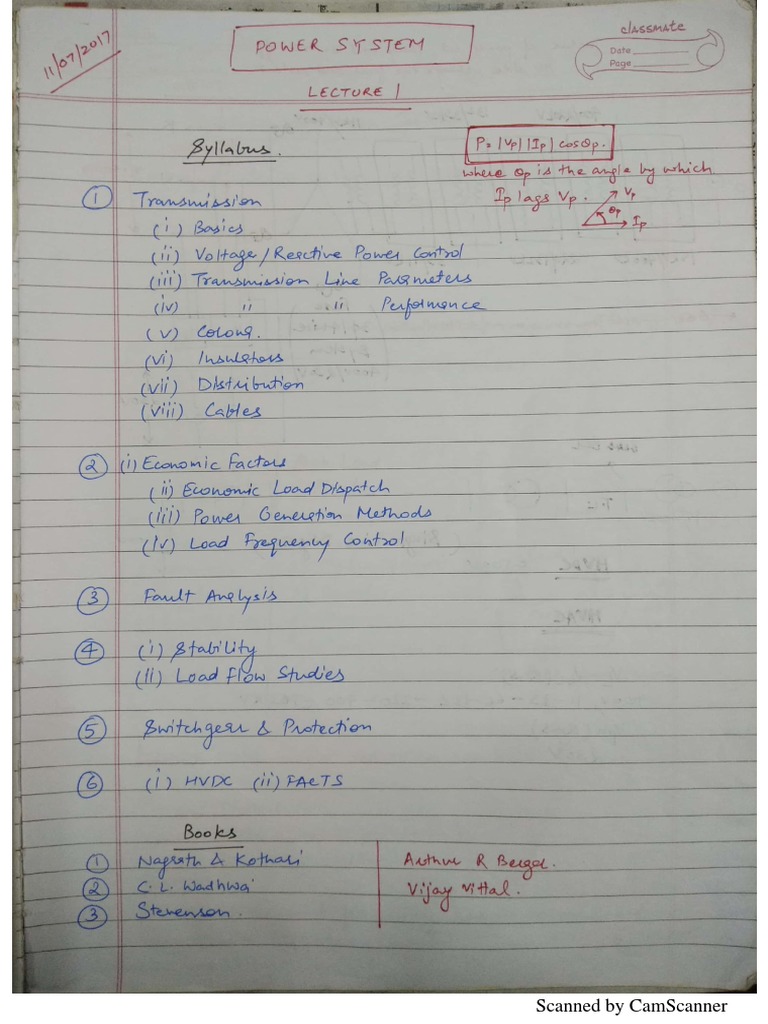 11/07/2017
POWER SYSTEM
classmate
Date
Page
LECTURE 1
Syllabus.
P = |Vp| |Ip| cosθp.
where θp is the angle by which
Ip lags Vp.
Vp
θp
Ip
① Transmission
(i) Basics
(ii) Voltage/Reactive Power Control
(iii) Transmission Line Parameters
(iv) " " Performance
(v) Corona.
(vi) Insulators
(vii) Distribution
(viii) Cables
② (i) Economic Factors
(ii) Economic Load Dispatch
(iii) Power Generation Methods
(iv) Load Frequency Control
③ Fault Analysis
④ (i) Stability
(ii) Load Flow Studies
⑤ Switchgear & Protection
⑥ (i) HVDC (ii) FACTS
Books
① Nagrath & Kothari
② C.L. Wadhwa
③ Stevenson.
Arthur R Berger.
Vijay Vittal.
Scanned by CamScanner